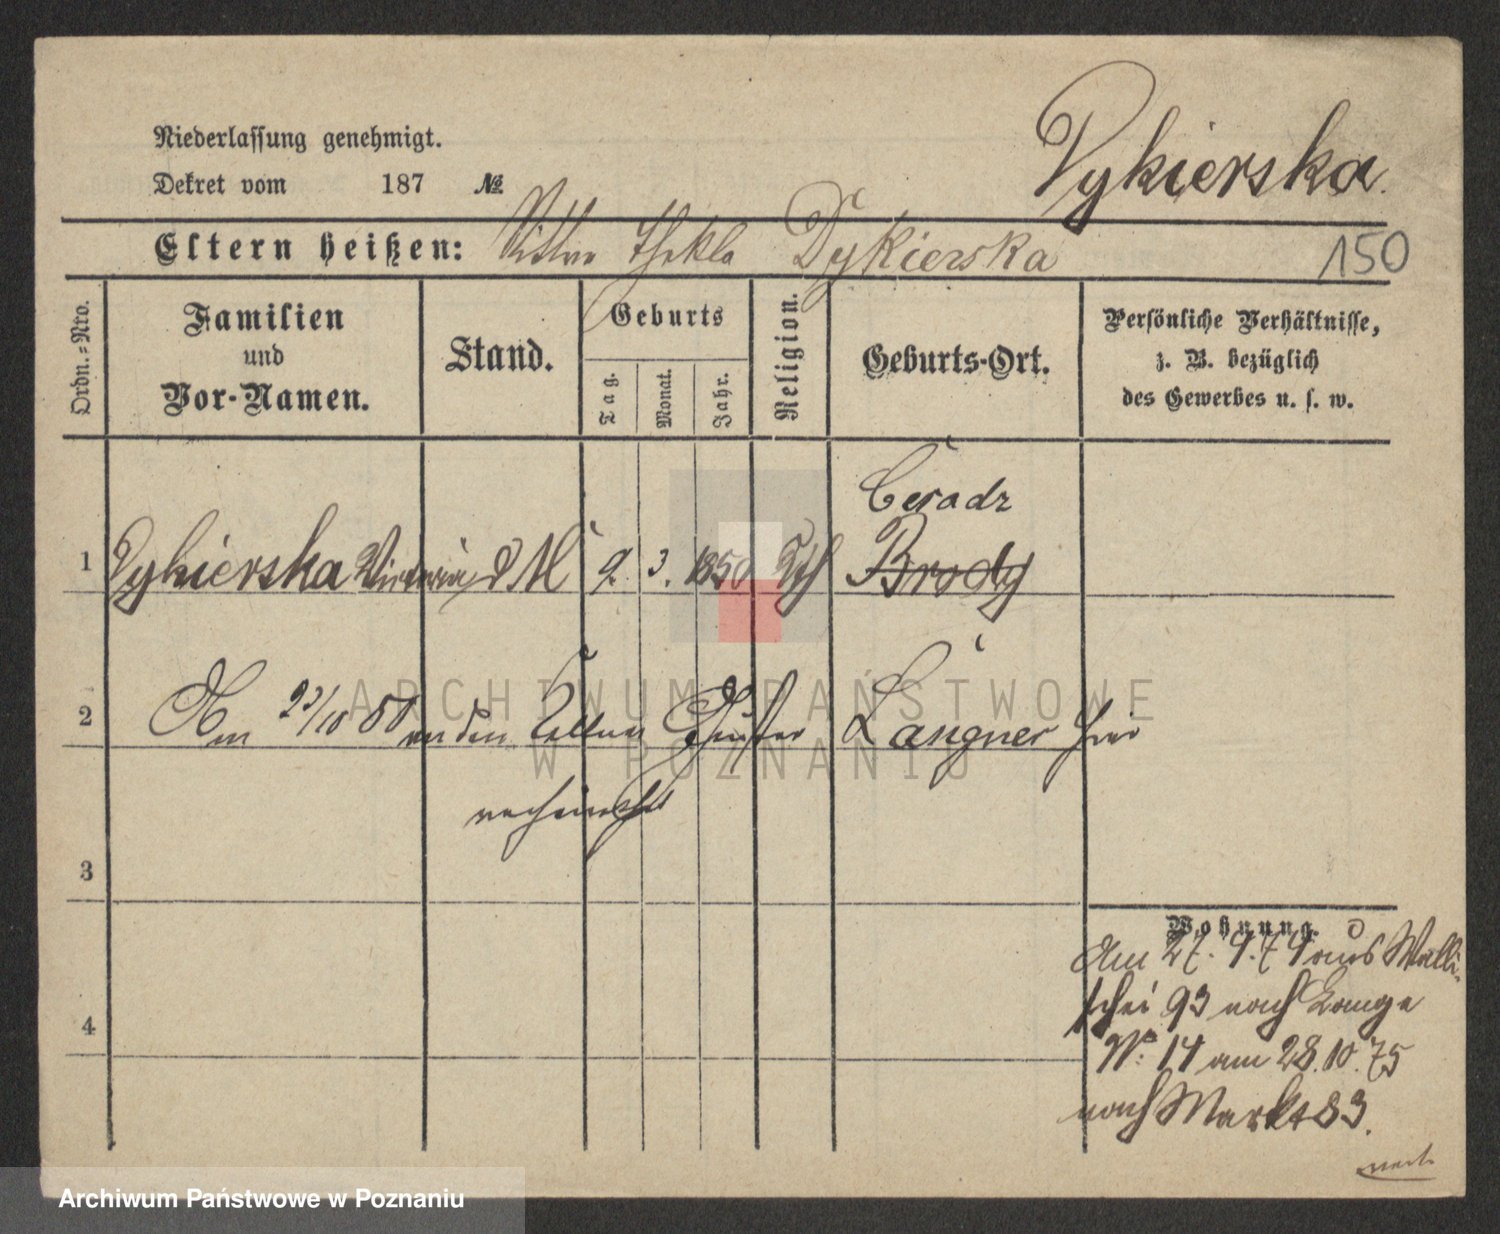 Niederlassung genehmigt.
Dykierska
Dekret vom 187 №
Eltern heißen: Thekla Dykierska
150
Ordn.-Nro.
Familien
und
Vor-Namen.
Stand.
Geburts
Tag.
Monat.
Jahr.
Religion.
Geburts-Ort.
Persönliche Verhältnisse,
z. B. bezüglich
des Gewerbes u. s. w.
Ceradz
1 Dykierska Victoria d M 9. 3. 1850 kth Brody
2 Am 23/10 80 an den Kellner Gustav Langner hier
verheirathet
3
Wohnung.
Am 27. 9. 74 aus Walli-
schei 93 nach Lange
4
№ 14 am 28.10.75
nach Markt 83.
ARCHIWUM PAŃSTWOWE
W POZNANIU
Archiwum Państwowe w Poznaniu